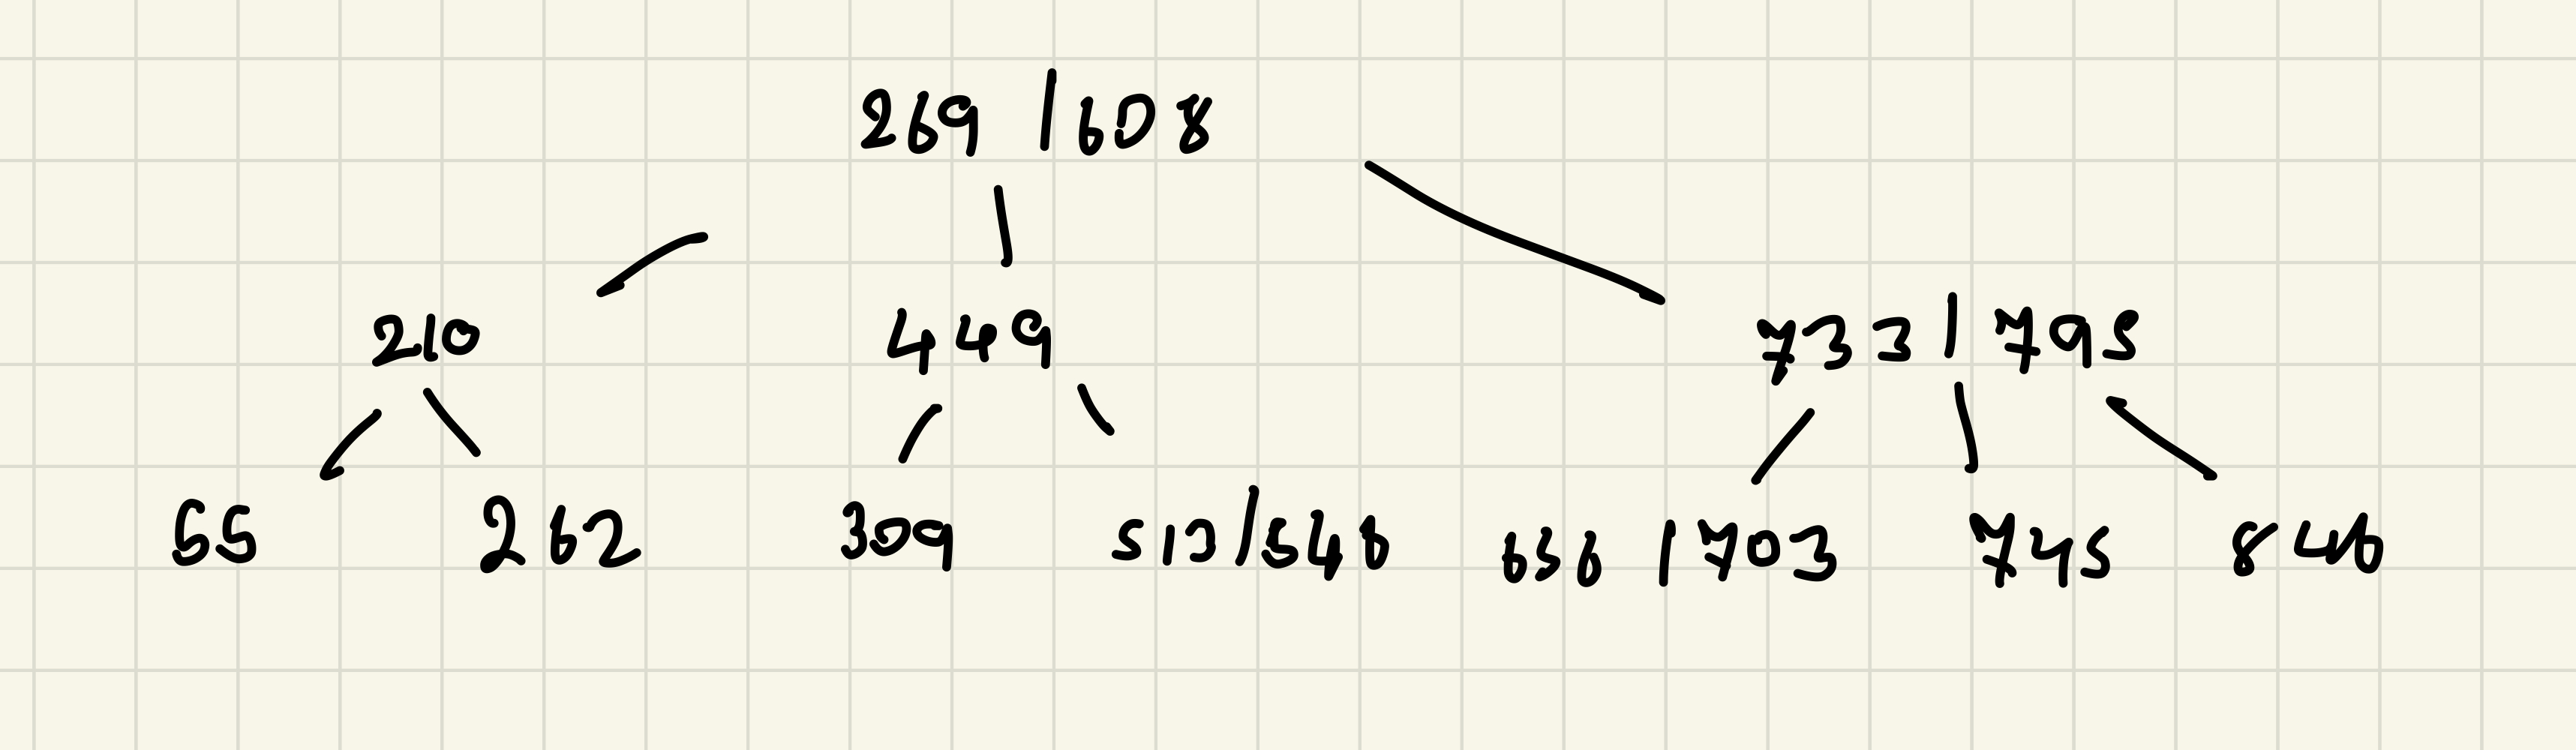 269 | 608
210 449 733 | 795
65 262 309 513/548 656 | 703 745 846